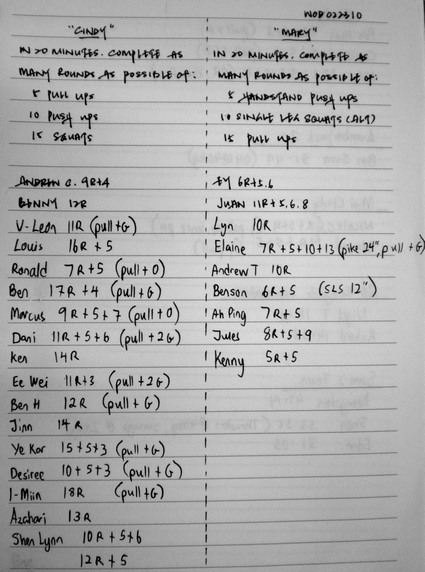 WOD 022310
"CINDY"
IN 20 MINUTES. COMPLETE AS
MANY ROUNDS AS POSSIBLE OF:
5 PULL UPS
10 PUSH UPS
15 SQUATS
ANDREW C. 9R+4
BENNY 12R
V-Leon 11R (pull+G)
Louis 16R + 5
Ronald 7R+5 (pull+O)
Ben 17R + 4 (pull+G)
Marcus 9R+5+7 (pull+O)
Dani 11R +5+6 (pull+2G)
Ken 14R
Ee Wei 11R+3 (pull+2G)
Ben H 12R (pull+G)
Jinn 14R
Ye Kar 15+5+3 (pull+G)
Desiree 10+5+3 (pull+G)
I-Miin 18R (pull+G)
Azahari 13R
Shen Lynn 10R + 5+6
12R + 5
"MARY"
IN 20 MINUTES. COMPLETE AS
MANY ROUNDS AS POSSIBLE OF:
5 HANDSTAND PUSH UPS
10 SINGLE LEG SQUATS (ALT)
15 PULL UPS
6R+5.6
JUAN 11R+5.6.8
Lyn 10R
Elaine 7R+5+10+13 (pike 24", pull+G)
Andrew T 10R
Benson 6R+5 (SLS 12")
Ah Ping 7R+5
Jules 8R+5+9
Kenny 5R+5